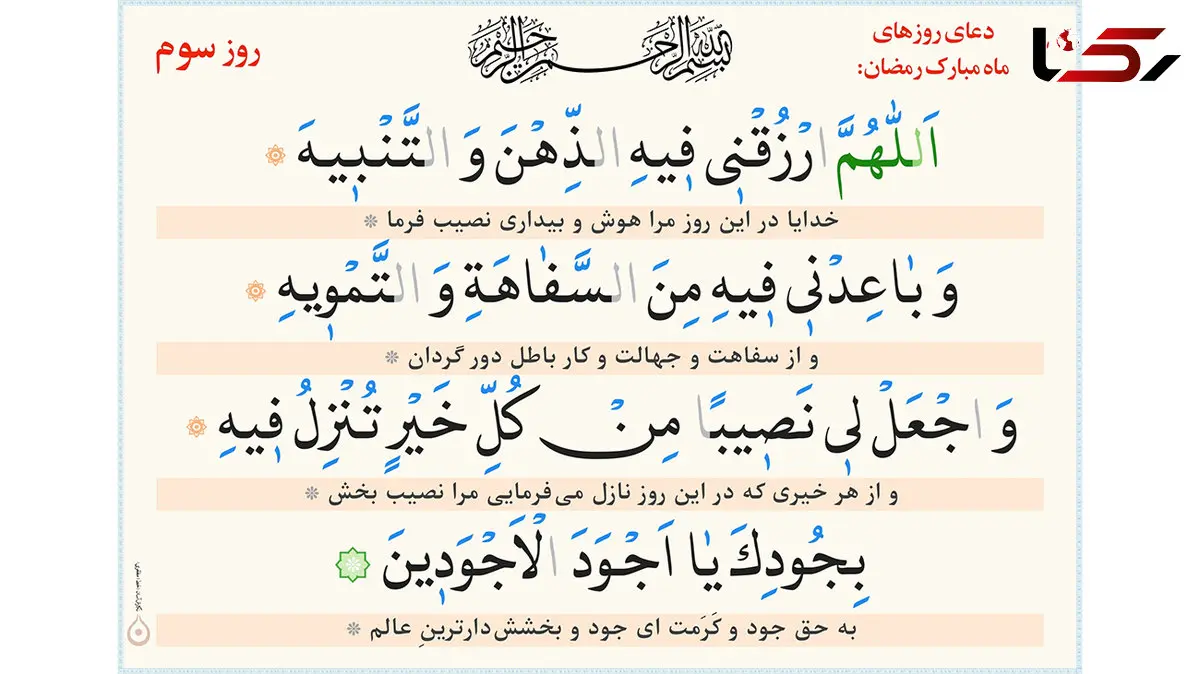 دعای روزهای
ماه مبارک رمضان:
بسم الله الرحمن الرحیم
روز سوم
رکنا
اَللّٰهُمَّ ارْزُقْنٖی فٖیهِ الذِّهْنَ وَ التَّنْبٖیهَ
خدایا در این روز مرا هوش و بیداری نصیب فرما
وَ بٰاعِدْنٖی فٖیهِ مِنَ السَّفٰاهَةِ وَ التَّمْوٖیهِ
و از سفاهت و جهالت و کار باطل دور گردان
وَ اجْعَلْ لٖی نَصٖیبًا مِنْ کُلِّ خَیْرٍ تُنْزِلُ فٖیهِ
و از هر خیری که در این روز نازل می‌فرمایی مرا نصیب بخش
بِجُودِكَ یٰا اَجْوَدَ الْاَجْوَدٖینَ
به حق جود و کَرَمت ای جود و بخشش‌دارترینِ عالم